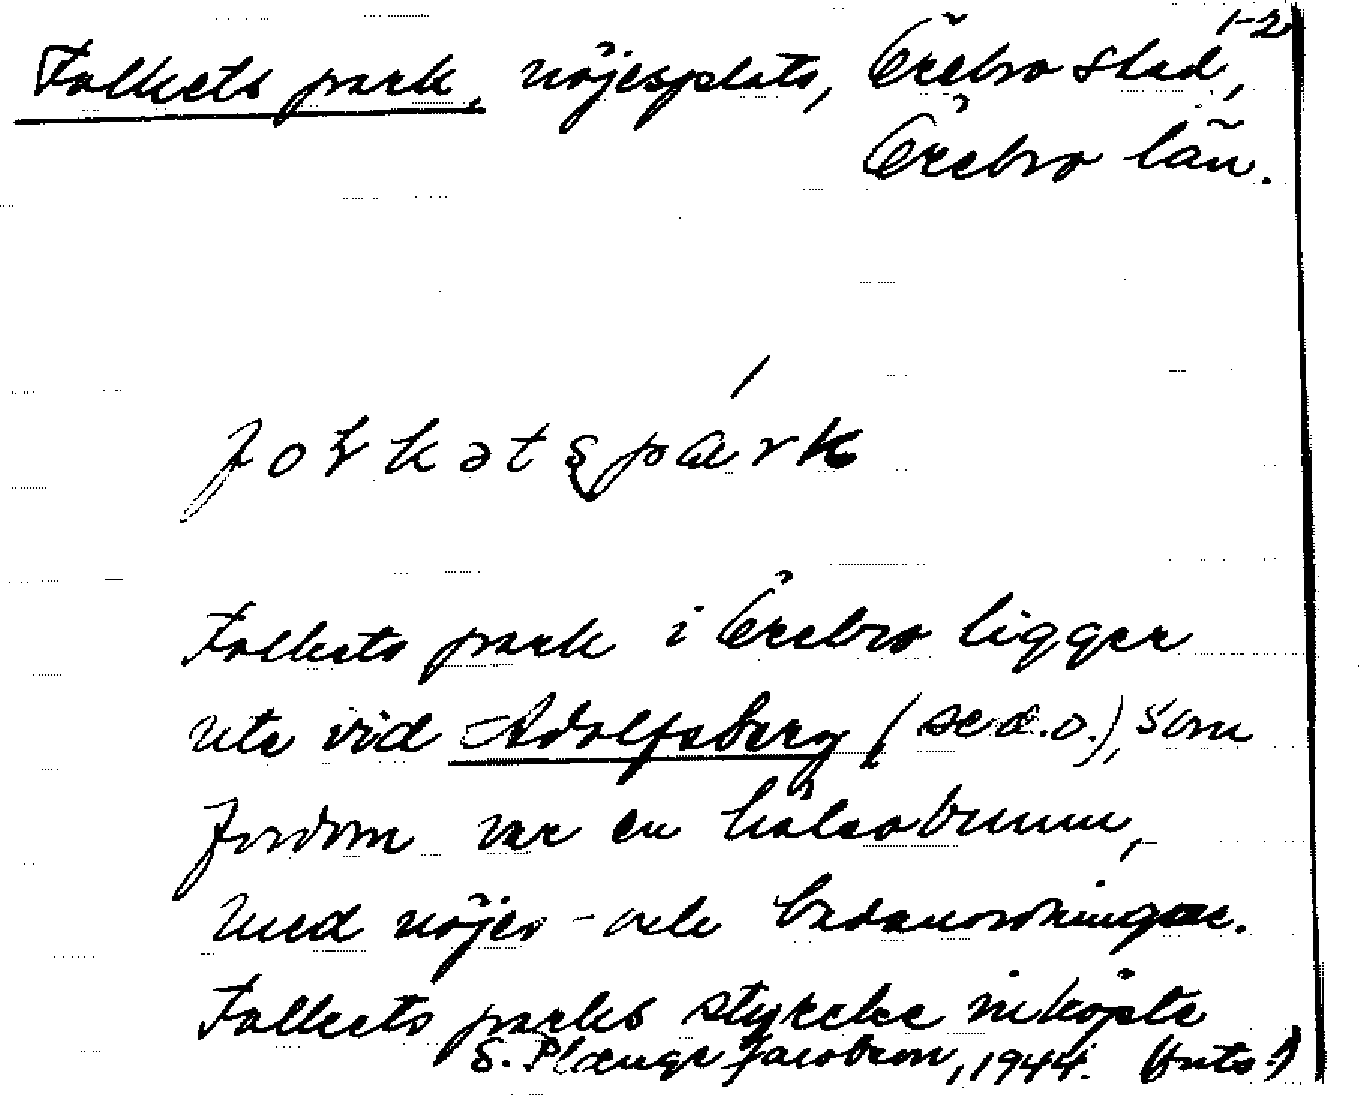 1-2
Folkets park, nöjesplats, Örebro stad,
Örebro län.
fołkətspárk
Folkets park i Örebro ligger
ute vid Adolfsberg (se d.o.), som
fordom var en hälsobrunn,
med nöjes- och badanordningar.
Folkets parks styrelse inköpte
S. Plænge Jacobson, 1944. (forts.)